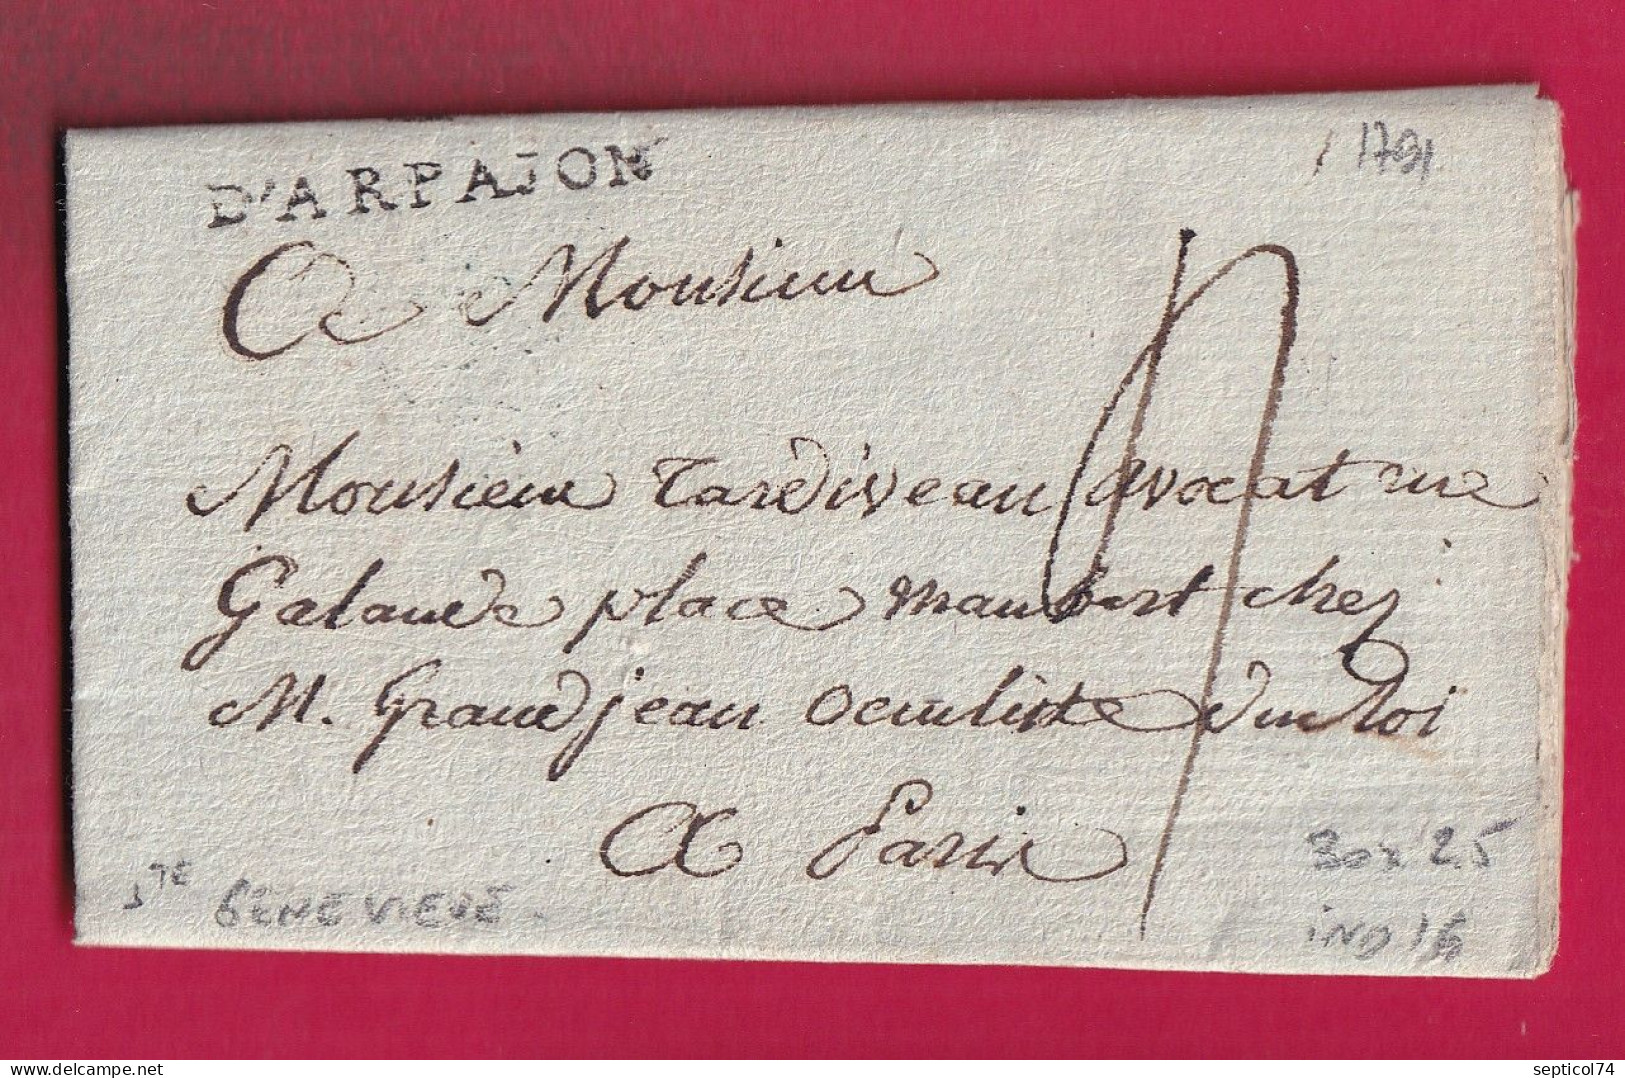 D'ARPAJON
1791
A Monsieur
Monsieur Tardiveau avocat rue
Galande place Maubert chez
M. Grandjean oculiste du Roi
A Paris
STE GENEVIEVE
30 x 25
IND 16
septicol74